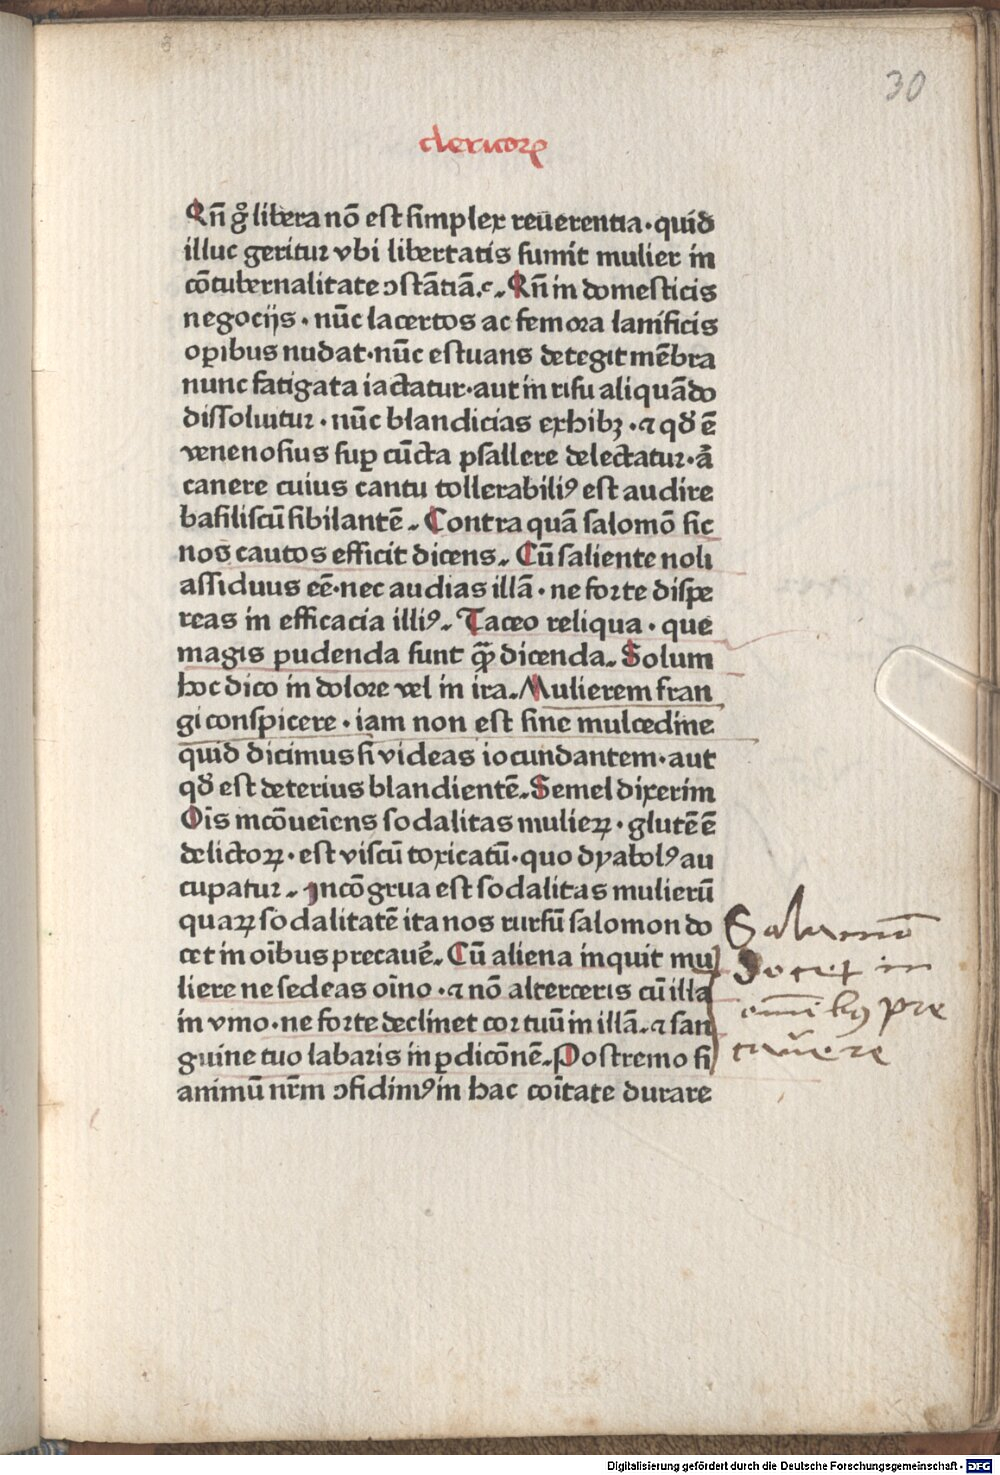 30
clericorꝝ
Qn̄ gͦ libera nō est simplex reuerentia · quid
illuc geritur vbi libertatis sumit mulier in
cōtubernalitate ↄstātiā.c. Qn̄ in domesticis
negocijs · nūc lacertos ac femora lanificis
oꝑibus nudat · nūc estuans detegit mēbra
nunc fatigata iactatur · aut in risu aliquādo
dissoluitur · nūc blandicias exhibꝫ · ⁊ qđ ē
venenosius suꝑ cūcta psallere delectatur · ā
canere cuius cantu tollerabiliꝰ est audire
basiliscū sibilantē. Contra quā salomō sic
nos cautos efficit dicens. Cū saliente noli
assiduus eē · nec audias illā · ne forte dispe
reas in efficacia illiꝰ. Taceo reliqua · que
magis pudenda sunt q̄ꝫ dicenda. Solum
hoc dico in dolore vel in ira. Mulierem fran
gi conspicere · iam non est sine mulcedine
quid dicimus si videas iocundantem · aut
qđ est deterius blandientē. Semel dixerim
Oīs incōueīens sodalitas mulieꝝ · glutē ē
delictoꝝ · est viscū toxicatū · quo dyabolꝰ au
cupatur. Incōgrua est sodalitas mulierū
quaꝝ sodalitatē ita nos rursū salomon do
cet in oībus precauē̄. Cū aliena inquit mu
liere ne sedeas oīno · ⁊ nō alterceris cū illa
in vino · ne forte declinet cor tuū in illā. ⁊ san
guine tuo labaris in ꝑdicōnē. Postremo si
animū nr̄m ↄfidimꝰ in hac coītate durare
Salamō
docet in
omnibꝰ pre
cauere
Digitalisierung gefördert durch die Deutsche Forschungsgemeinschaft · DFG